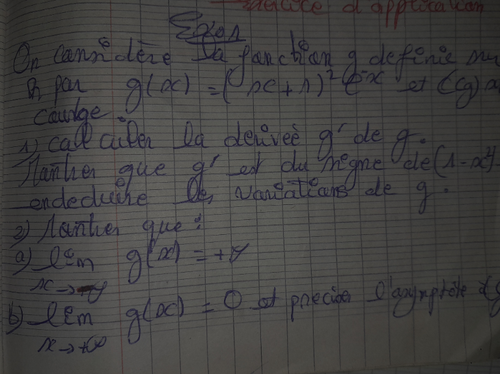 Exercice d'application
Exo1
On considère la fonction g définie sur
R par g(x) = (x+1)² e^x et (Cg)
courbe
1) calculer la derivée g' de g.
Montrer que g' est du signe de (1-x²).
endeduire les variations de g.
2) Montrer que :
a) lim g(x) = +∞
x→-∞
b) lim g(x) = 0 et preciser l'asymptote
x→+∞